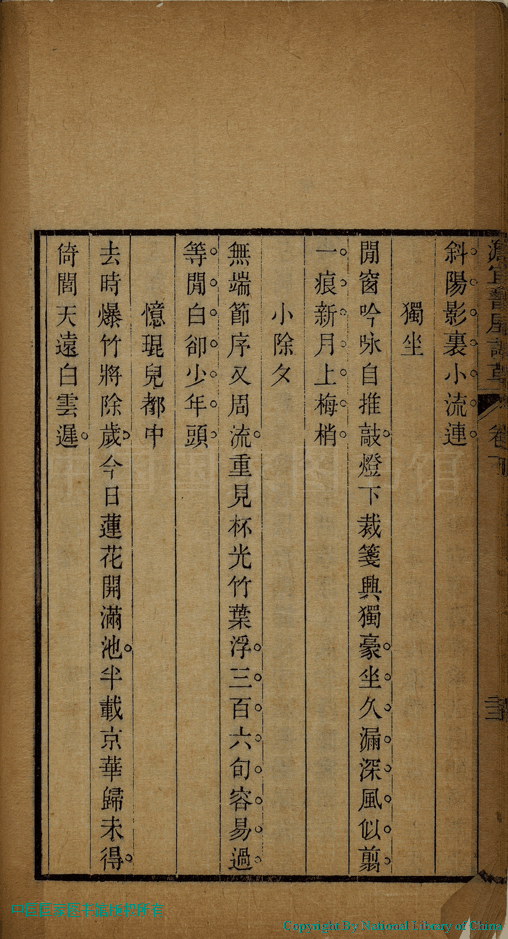 斜陽影裏小流連
獨坐
閒窗吟咏自推敲燈下裁箋興獨豪坐久漏深風似翦
一痕新月上梅梢
小除夕
無端節序又周流重見杯光竹葉浮三百六旬容易過
等閒白卻少年頭
憶琨兒都中
去時爆竹將除歲今日蓮花開滿池半載京華歸未得
倚閭天遠白雲遲
卷下
Copyright By National Library of China